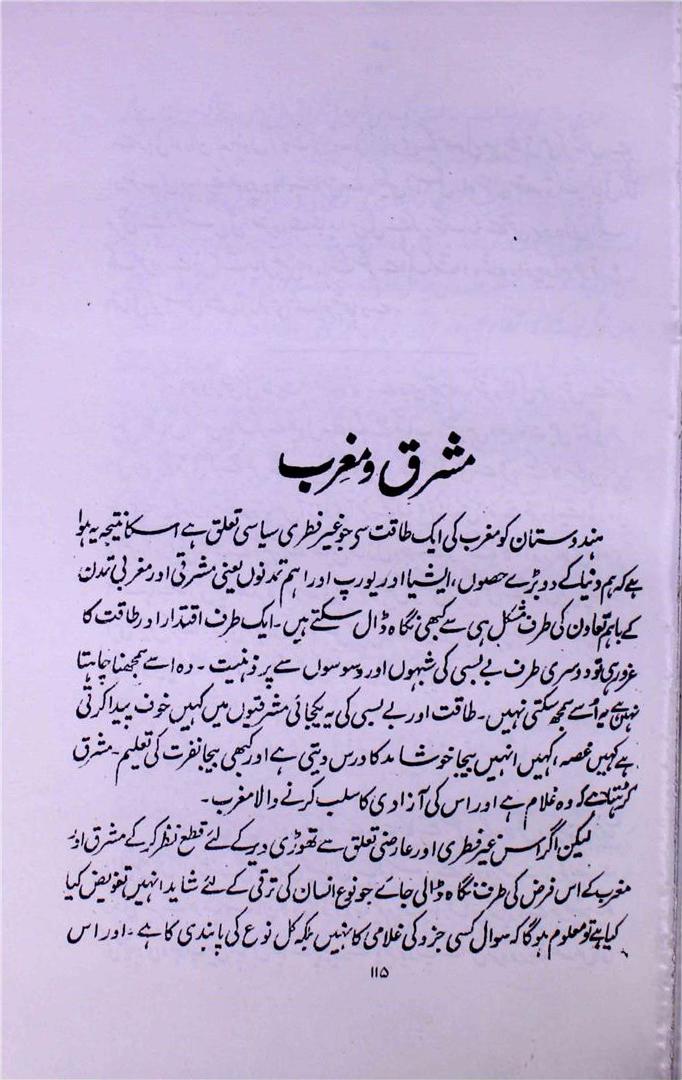 مشرق و مغرب
ہندوستان کو مغرب کی ایک طاقت سی جو غیر فطری سیاسی تعلق ہے اسکا نتیجہ یہ ہوا
ہے کہ ہم دنیا کے دو بڑے حصوں ، ایشیا اور یورپ اور اہم تمدنوں یعنی مشرقی اور مغربی تمدن
کے باہم تعاون کی طرف مشکل ہی سے کبھی نگاہ ڈال سکتے ہیں ۔ ایک طرف اقتدار اور طاقت کا
غرور ہی تو دوسری طرف بے بسی کی شبہوں اور وسوسوں سے پر ذہنیت ۔ وہ اسے سمجھنا چاہتا
نہیں ہے یہ اُسے سمجھ سکتی نہیں ۔ طاقت اور بے بسی کی یہ یکجائی مشرقیوں میں کہیں خوف پیدا کرتی
ہے کہیں غصہ ، کہیں انہیں بیجا خوشامد کا درس دیتی ہے اور کبھی بیجا نفرت کی تعلیم ۔ مشرق
کہتا ہے کہ وہ غلام ہے اور اس کی آزادی کا سلب کرنے والا مغرب ۔
لیکن اگر اس غیر فطری اور عارضی تعلق سے تھوڑی دیر کے لئے قطع نظر کر کے مشرق اور
مغرب کے اس فرض کی طرف نگاہ ڈالی جائے جو نوع انسان کی ترقی کے لئے شاید انہیں تفویض کیا
گیا ہے تو معلوم ہوگا کہ سوال کسی جزو کی غلامی کا نہیں بلکہ کل نوع کی پابندی کا ہے ۔ اور اس
۱۱۵